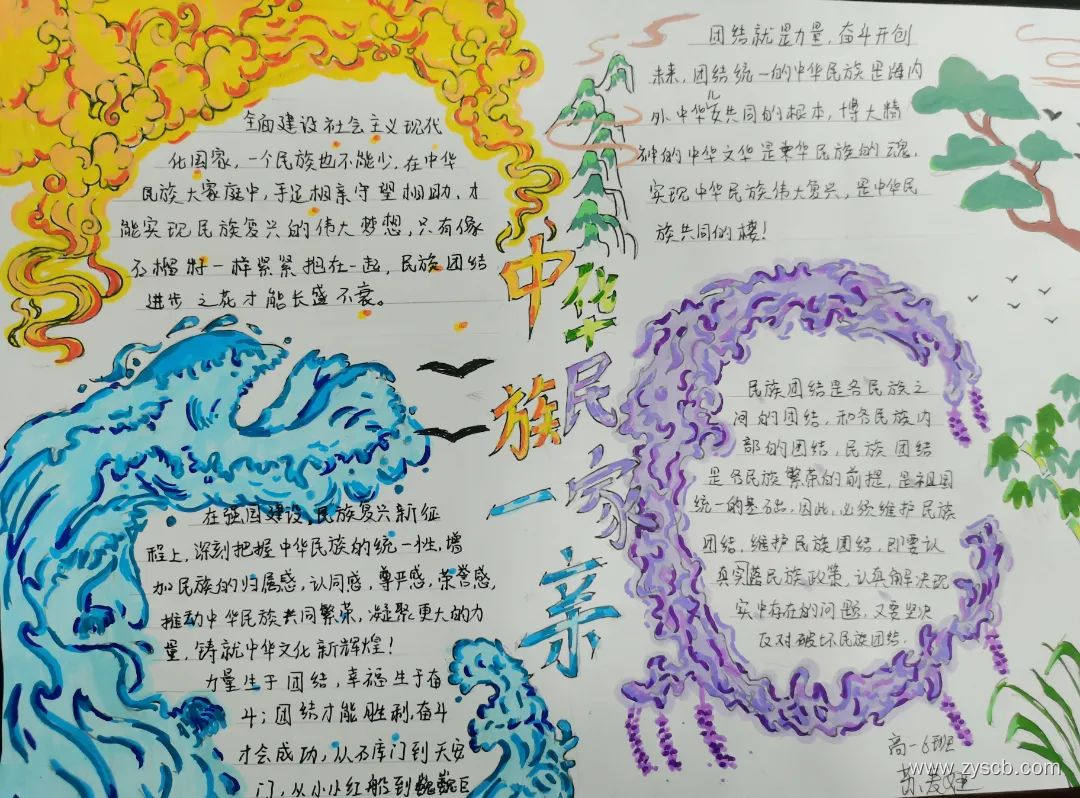 全面建设社会主义现代
化国家，一个民族也不能少，在中华
民族大家庭中，手足相亲守望相助，才
能实现民族复兴的伟大梦想，只有像
石榴籽一样紧紧抱在一起，民族团结
进步之花才能长盛不衰。
中华民族一家亲
团结就是力量，奋斗开创
未来，团结统一的中华民族是海内
外中华儿女共同的根本，博大精
神的中华文华是中华民族的魂，
实现中华民族伟大复兴，是中华民
族共同的
在强国建设，民族复兴新征
程上，深刻把握中华民族的统一性，增
加民族的归属感，认同感，尊严感，荣誉感，
推动中华民族共同繁荣，凝聚更大的力
量，铸就中华文化新辉煌！
力量生于团结，幸福生于奋
斗；团结才能胜利，奋斗
才会成功，从石库门到天安
门，从小小红船到巍巍巨
民族团结是各民族之
间的团结，和各民族内
部的团结，民族团结
是各民族繁荣的前提，是祖国
统一的基础，因此，必须维护民族
团结，维护民族团结，即要认
真实落民族政策，认真解决现
实中存在的问题，又要坚决
反对破坏民族团结.
高一6班
www.zyscb.com